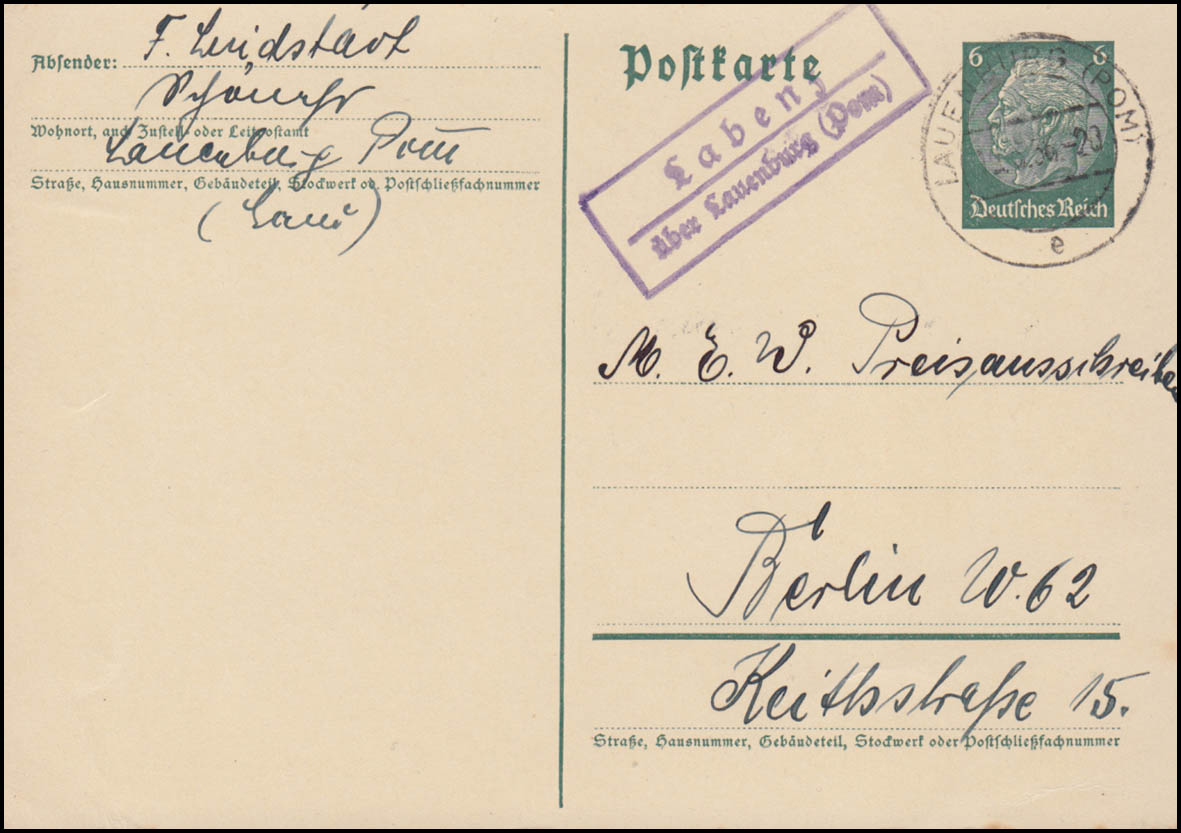 Absender: F.
Wohnort, auch Zustell- oder Leitpostamt
Lauenburg Pom
Straße, Hausnummer, Gebäudeteil, Stockwerk od. Postschließfachnummer
Postkarte
Labenz
über Lauenburg (Pom)
6 6
Deutsches Reich
LAUENBURG (POM)
36.-20
e
M. E. W. Preisausschreiben
Berlin W. 62
Keithstraße 15.
Straße, Hausnummer, Gebäudeteil, Stockwerk oder Postschließfachnummer